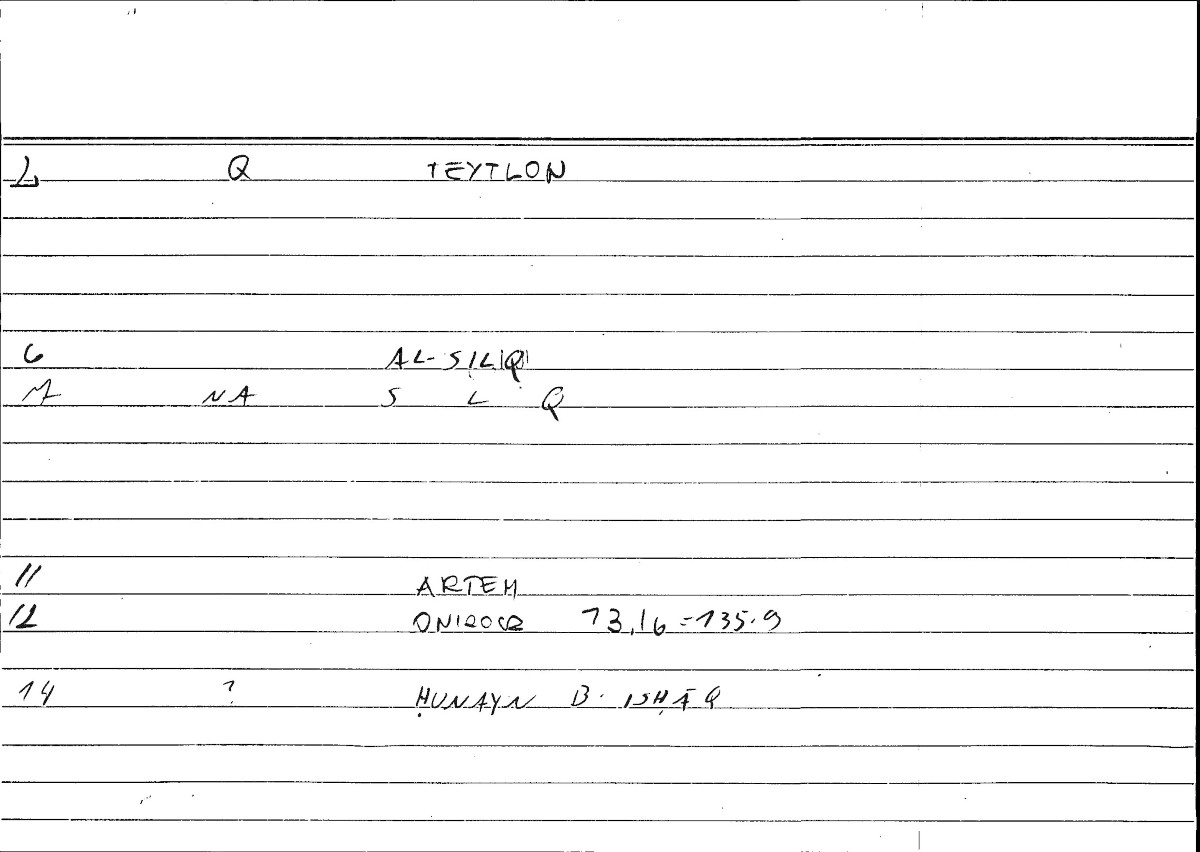 L Q TEYTLON
6 AL-SILQ
M NA S L Q
11 ARTEM
12 ONIROCR 73,16=135.9
14 ? ḤUNAYN B. ISḤĀQ